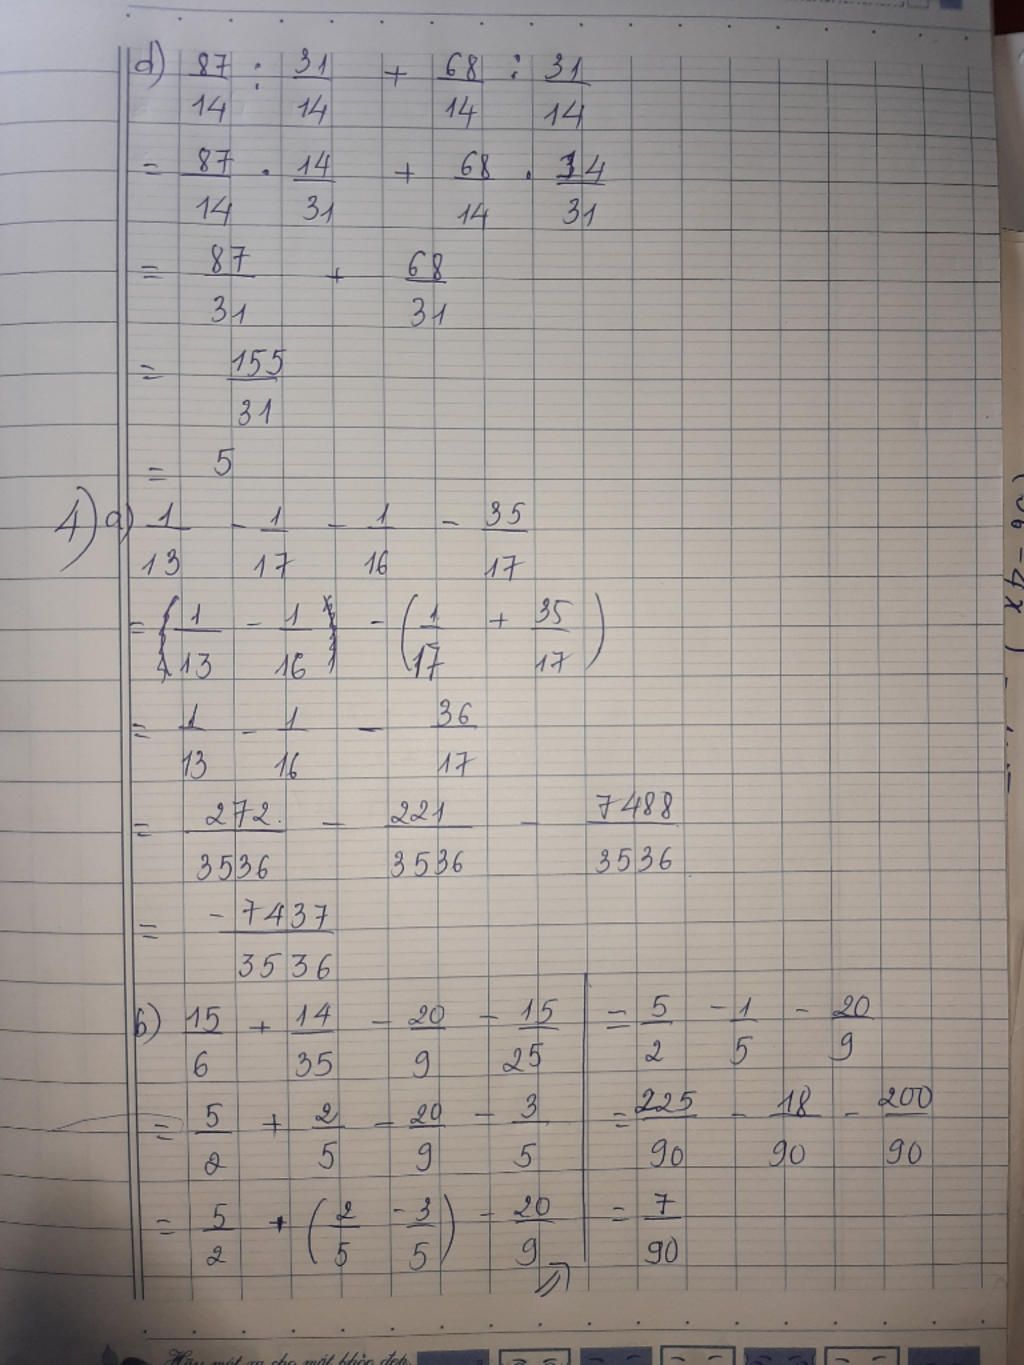 d) 87/14 : 31/14 + 68/14 : 31/14
= 87/14 . 14/31 + 68/14 . 14/31
= 87/31 + 68/31
= 155/31
= 5
4) a) 1/13 - 1/17 - 1/16 - 35/17
= (1/13 - 1/16) - (1/17 + 35/17)
= 1/13 - 1/16 - 36/17
= 272/3536 - 221/3536 - 7488/3536
= -7437/3536
b) 15/6 + 14/35 - 20/9 - 15/25
= 5/2 + 2/5 - 20/9 - 3/5
= 5/2 + (2/5 - 3/5) - 20/9
= 5/2 - 1/5 - 20/9
= 225/90 - 18/90 - 200/90
= 7/90